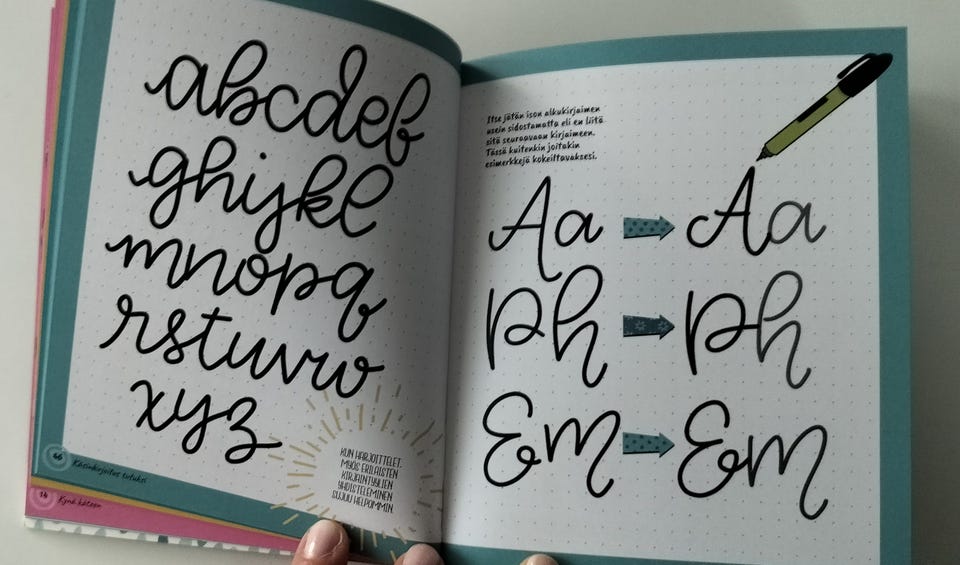 abcdef
ghijkl
mnopq
rstuvw
xyz
KUN HARJOITTELET,
MYÖS ERILAISTEN
KIRJAINTYYLIEN
YHDISTELEMINEN
SUJUU HELPOMMIN.
66 Käsinkirjoitus tutuksi
14 Kynä käteen
Itse jätän ison alkukirjaimen
usein sidostamatta eli en liitä
sitä seuraavaan kirjaimeen.
Tässä kuitenkin joitakin
esimerkkejä kokeiltavaksesi.
Aa Aa
Ph Ph
Em Em